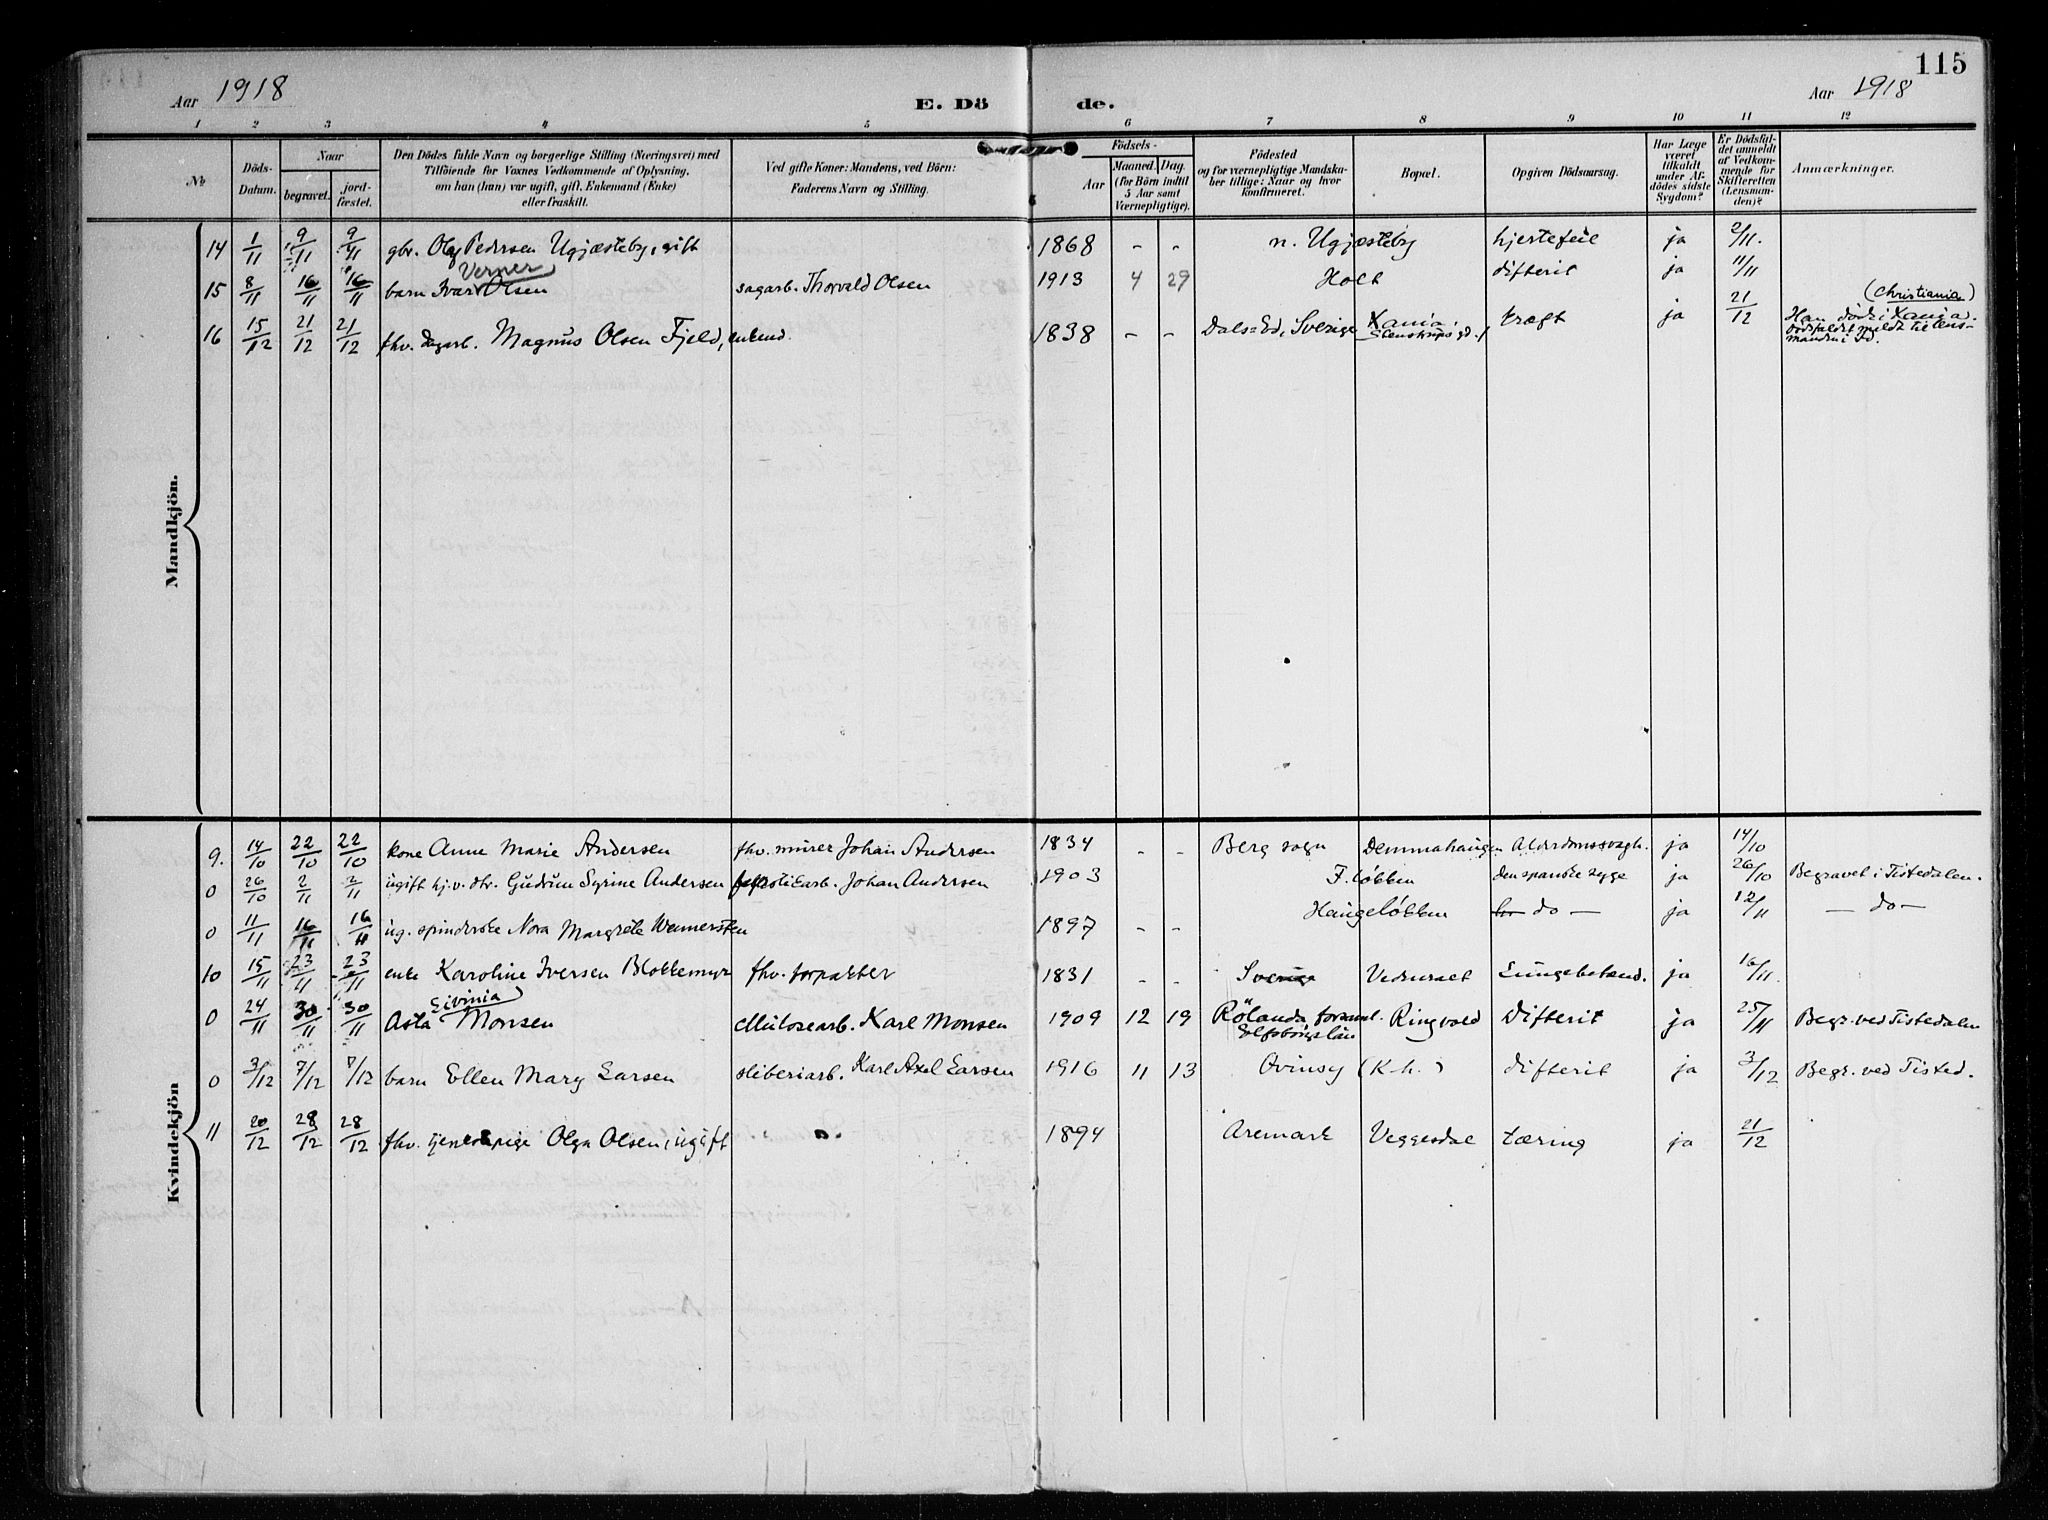 115
Aar 1918 E. Dö de. Aar 1918
1 2 3 4 5 6 7 8 9 10 11 12
No
Döds-Datum.
Naar
begravet.
jord-fæstet.
Den Dödes fulde Navn og borgerlige Stilling (Næringsvei) med
Tilföiende for Voxnes Vedkommende af Oplysning,
om han (hun) var ugift, gift, Enkemand (Enke)
eller fraskilt.
Ved gifte Koner: Mandens, ved Börn:
Faderens Navn og Stilling.
Födsels-
Aar
Maaned. Dag.
(for Börn indtil
5 Aar samt
Værnepligtige).
Födested
og for værnepligtige Mandska-
ber tillige: Naar og hvor
konfirmeret.
Bopæl.
Opgiven Dödsaarsag.
Har Læge
været
tilkaldt
under Af-
dödes sidste
Sygdom?
Er Dödsfal-
det anmeldt
af Vedkom-
mende for
Skifteretten
(Lensman-
den)?
Anmærkninger.
Mandkjön.
14 1/11 9/11 9/11 gbr. Olaf Pedersen Ugjæsteby, gift 1868 - - n. Ugjæsteby hjertefeil ja 2/11.
Verner
15 8/11 16/11 16/11 barn Ivar Olsen sagarb. Thorvald Olsen 1913 4 29 Holt difterit ja 11/11
(Christiania)
16 15/12 21/12 21/12 fhv. dagarb. Magnus Olsen Fjeld, enkemd. 1838 - - Dals=Ed, Sverige Kania. Stenstrups gd. kræft ja 21/12 Han döde i Kania.
Dödsfaldet meldt til lens-
manden i Id.
Kvindekjön
9. 14/10 22/10 22/10 kone Anne Marie Andersen fhv. murer Johan Andersen 1834 - - Berg sogn Demmahaugen Alderdomssvagh. ja 14/10
0 26/10 2/11 2/11 ugift hj.v. dtr. Gudrun Syrine Andersen Johan Andersen 1903 F.løkken den spanske syge ja 26/10 Begravet i Tistedalen.
0 11/11 16/11 16/11 ug. spinderske Nora Margrete Wennersten 1897 - - Haugeløkken do - ja 12/11 - do -
10 15/11 23/11 23/11 enke Karoline Iversen Blokkemyr fhv. forpakter 1831 - - Sverige Vedensaet Lungebetænd. ja 16/11.
Livinia
0 24/11 30/11 30/11 Asta Monsen cellulosearb. Karl Monsen 1909 12 19 Rölanda forsaml. Ringvold Difterit ja 25/11 Begr. ved Tistedalen
Elfsborgslän
0 3/12 7/12 7/12 barn Ellen Mary Larsen sliberiarb. Karl Axel Larsen 1916 11 13 Svinsy (K-h.) difterit ja 3/12 Begr. ved Tisted.
11 20/12 28/12 28/12 fhv. tjenestepige Olga Olsen, ugift " " 1894 Aremark Veggesdal tæring ja 21/12